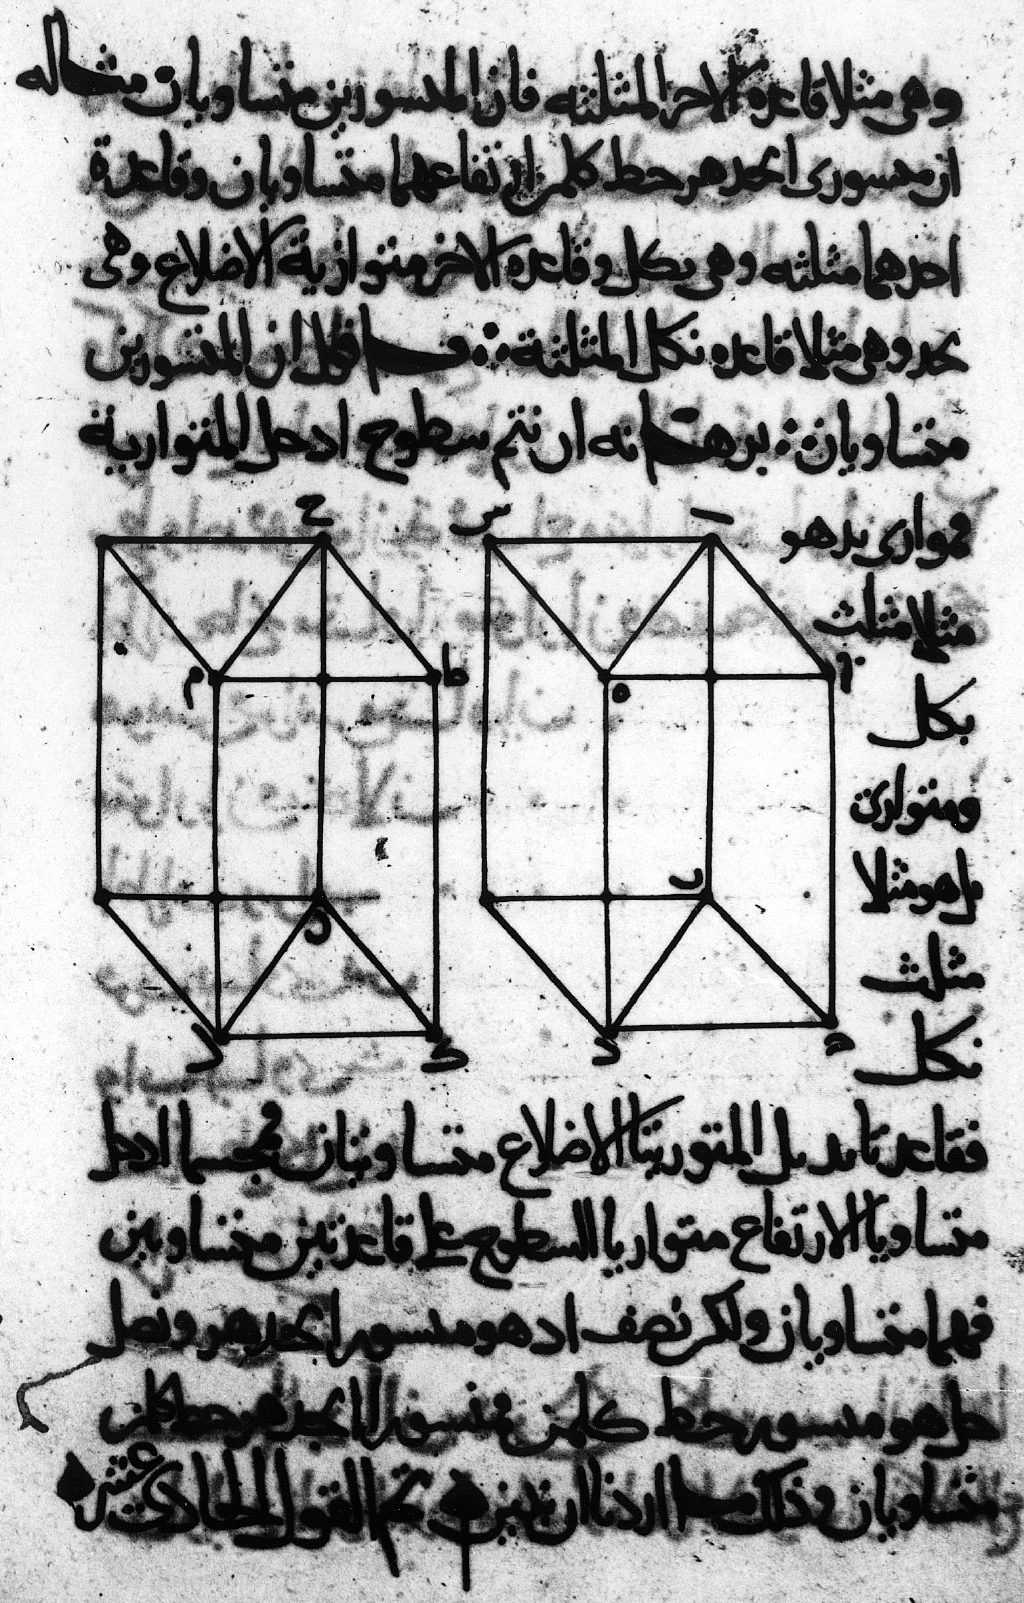 وهى مثلا قاعده الاخر المثلثه فان المنسورين متساويان مثاله
ان منسورى ابجد هز حط كلمن ارتفاعهما متساويان وقاعدة
احدهما مثلثه وهى يكل وقاعده الاخر متوازية الاضلاع وهى
بجد وهى مثلا قاعده يكل المثلثة فاقول ان المنسورين
متساويان برهانه ان نتم سطوح اد حل المتوازية
فموازى بد هو
مثلا مثلث
يكل
ومتوازى
يل هو مثلا
مثلث
يكل
ح
س
ط
م
ه
ى
ب
ل
ك
د
فقاعدتا بد يل المتوزيتا الاضلاع متساويتان فمجسما اد حل
متساويا الارتفاع متوازيا السطوح على قاعدتين متساويين
فهما متساويان ولكن نصف اد هو منسور ابجد هز ونصف
حل هو منسور حط كلمن فمنسورا ابجد هز حط كلمن
متساويان وذلك ما اردنا ان نبين تم القول الحادى عشر